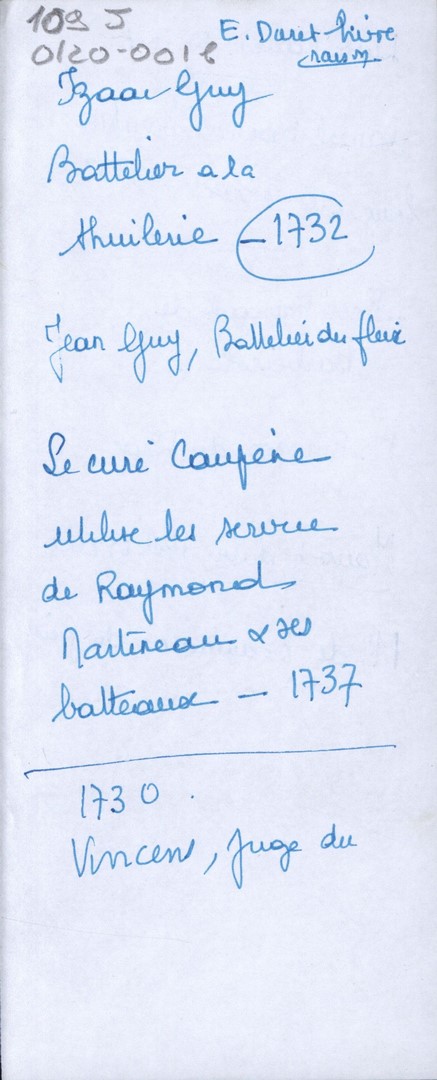 109 J
0120-0016
E. Daret livre
raison
Izaac Guy
Battelier a la
thuilerie - 1732
Jean Guy, Battelier du fleix
Le curé Caupène
utilise les services
de Raymond
Martineau & ses
batteaux - 1737
1730.
Vincens, juge du